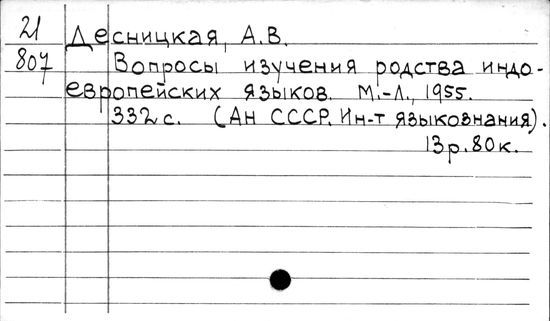 21 Десницкая, А.В.
807 Вопросы изучения родства индо-
европейских языков. М.-Л., 1955.
332 с. (Ан СССР. Ин-т языкознания).
13р.80к.